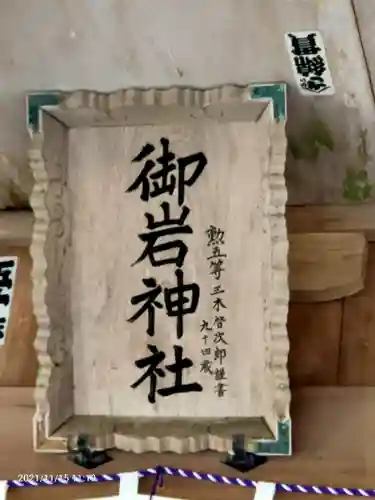 御岩神社
勲五等三木啓次郎謹書
九十四歳
2021/11/15 11:10